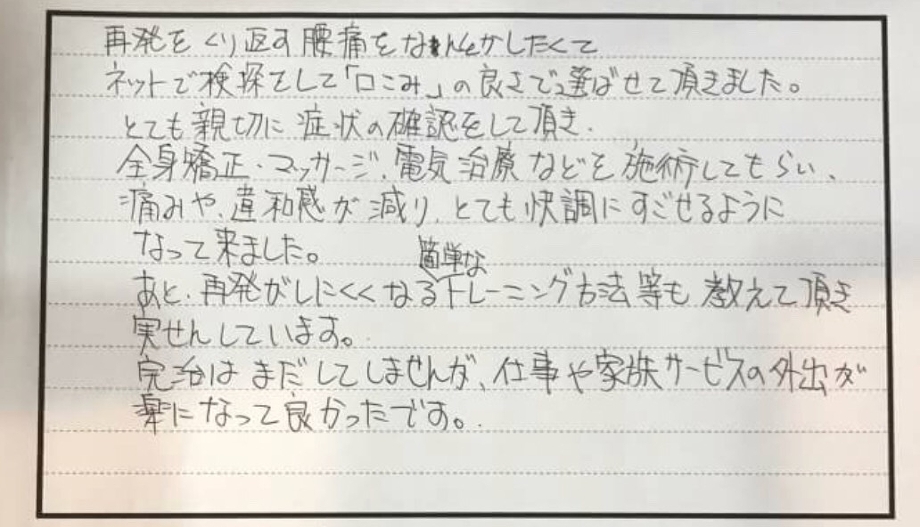 再発をくり返す腰痛をなんとかしたくて
ネットで検探をして「口こみ」の良さで選ばせて頂きました。
とても親切に症状の確認をして頂き、
全身矯正・マッサージ、電気治療などを施術してもらい、
痛みや、違和感が減り、とても快調にすごせるように
なって来ました。
あと、再発がしにくくなる簡単なトレーニング方法等も教えて頂き
実せんしています。
完治はまだしてしませんが、仕事や家族サービスの外出が
楽になって良かったです。